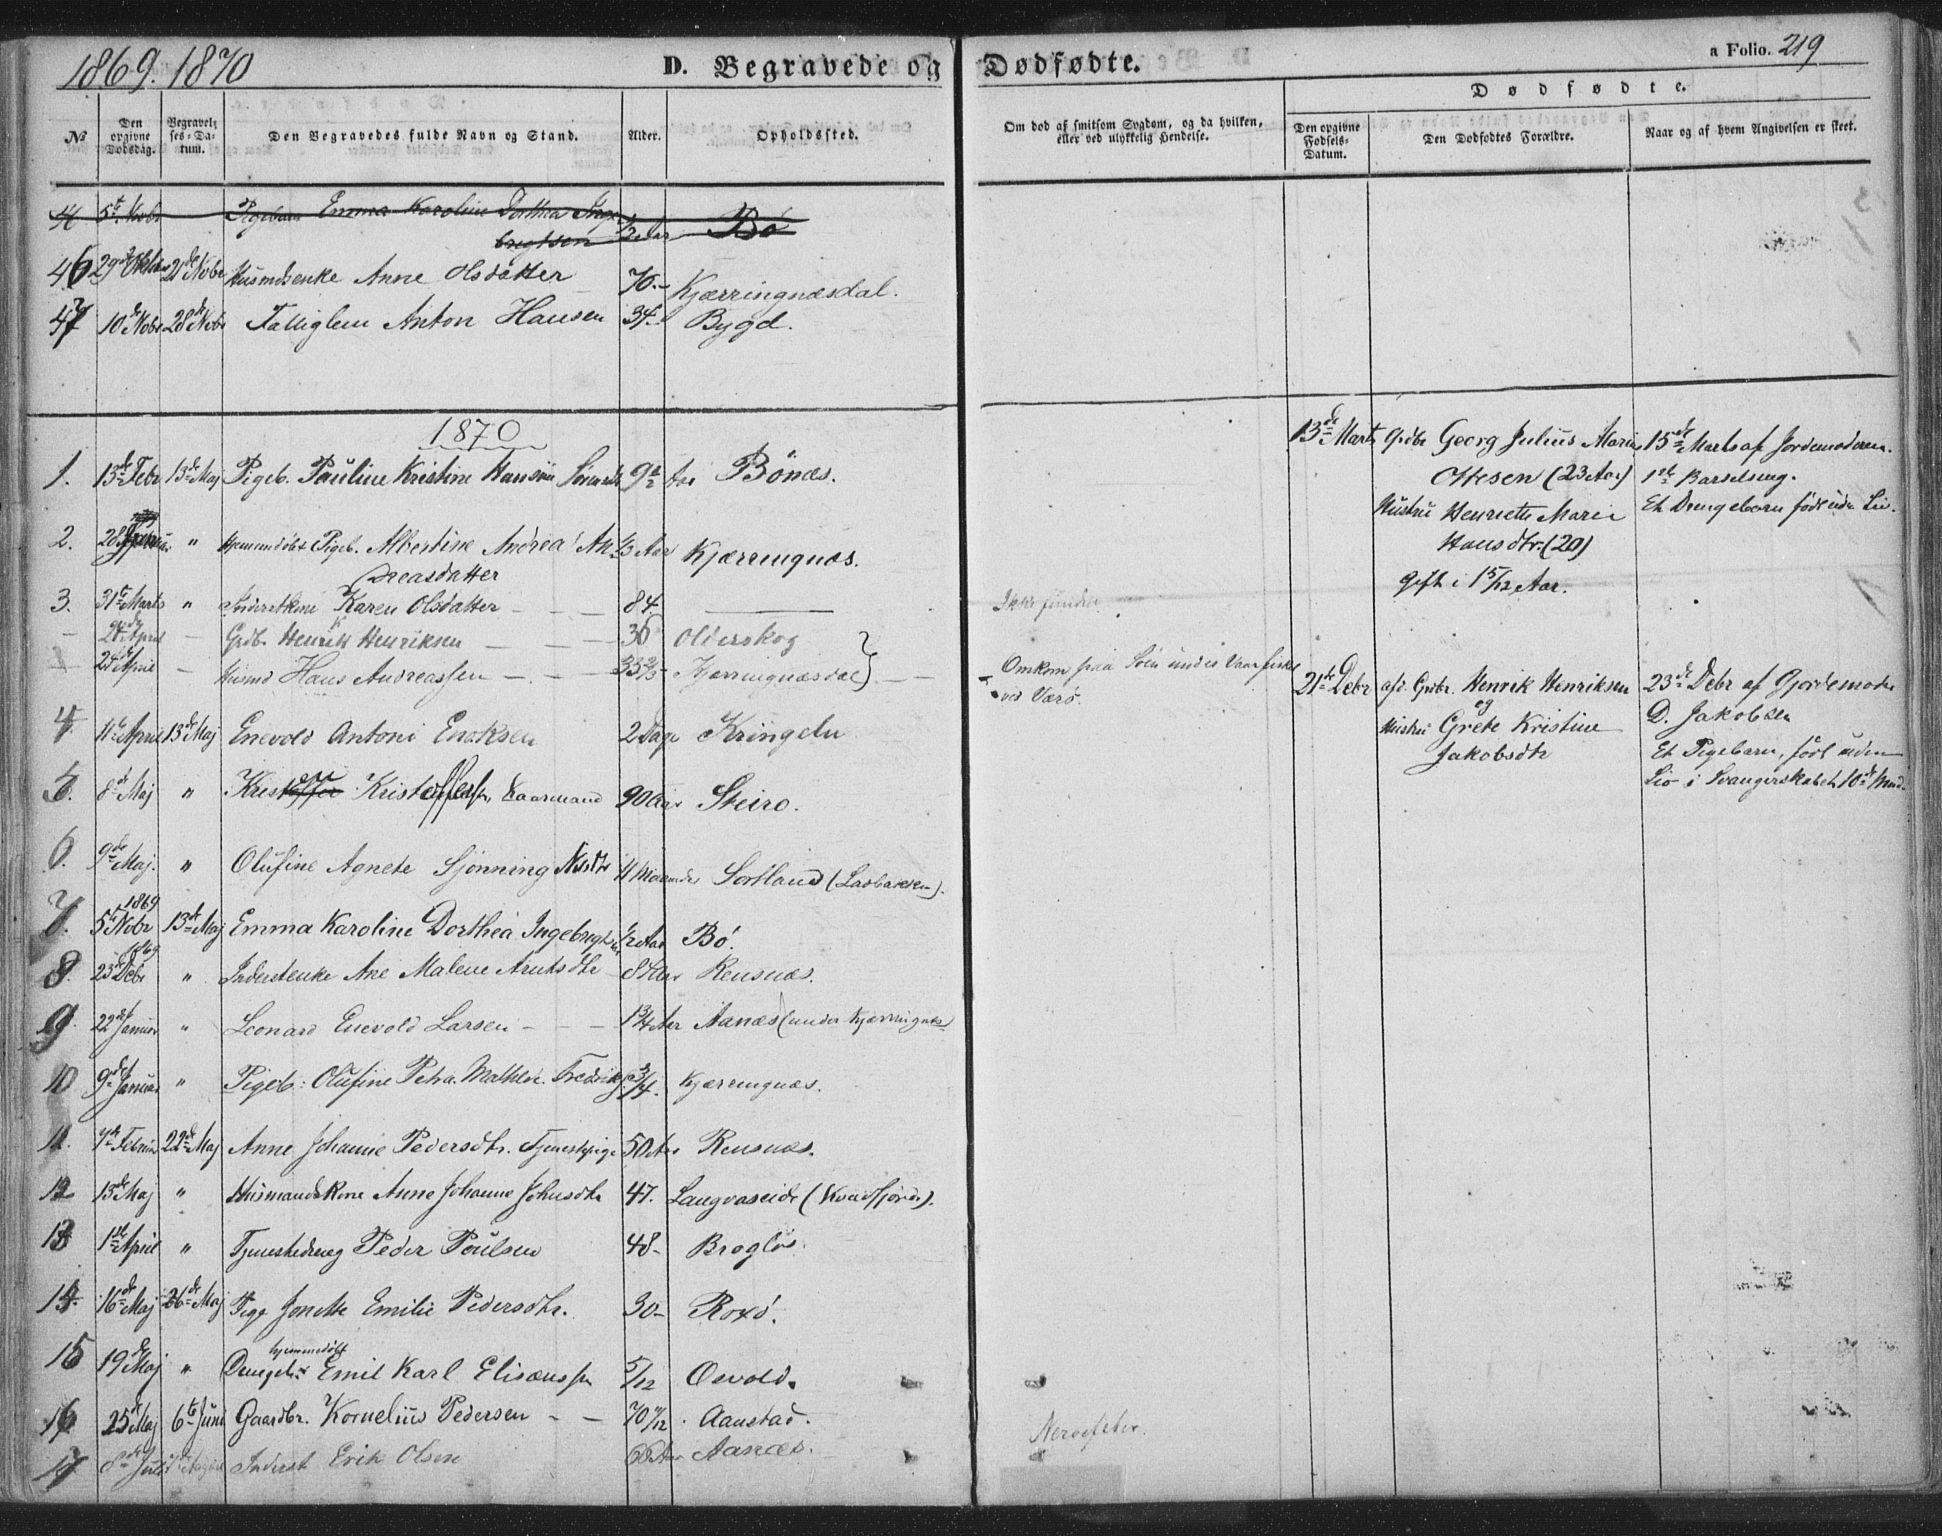 1869. 1870
D. Begravede og Dødfødte.
a Folio. 219
Dødfødte.
No
Den opgivne Dødsdag.
Begravelses-Datum.
Den Begravedes fulde Navn og Stand.
Alder.
Opholdssted.
Om død af smitsom Sygdom, og da hvilken, eller ved ulykkelig Hendelse.
Den opgivne Fødsels-Datum.
Den Dødfødtes Forældre.
Naar og af hvem Angivelsen er skeet.
5te Nobr Pigebarn Emma Karoline Dorthea Inge- 1/2 Aar Bø
brigtsen
46 29de Oktbr 21de Nobr Husmdsenke Anne Olsdatter 70.- Kjærringnæsdal.
47 10de Nobr 28de Nobr Fattiglem Anton Hansen 34.- Bygd.
1870
1. 13de Febr 13de Maj Pigeb. Pauline Kristine Hansine Sørensdtr 9 1/2 Aar Bønæs.
2. 28de Januar " Hjemmedøbt Pigeb. Albertine Andrea An- 1/3 Aar Kjærringnæs.
dreasdatter
3. 31te Marts " Karen Olsdatter - - - 84.
- 24de April - Grdb. Henrik Henriksen - - 36 Olderskog
24de April - Husmd Hans Andreassen - - - 33 2/3 - Kjærringnæsdal - -
Omkom paa Søen under Vaarfiske
ved Værø.
4. 11te April 13de Maj Enevold Antoni Enoksen 2 Dage Kringeln
5. 8de Maj " Kristoffer Kristoffersen, Kaarmand 90 Aar Steiro.
6. 9de Maj. " Olufine Agnete Sjønning Nilsdtr 11 Maaneder Sortland (Ladbakken).
7. 5te Nobr 1869 13de Maj Emma Karoline Dorthea Ingebrigtsen 1/2 Aar Bø.
8. 23de Debr 1869 " Inderstenke Ane Malene Arntsdtr 8 Aar Rensnæs.
9. 22de Januar " Leonard Enevold Larsen - - - 1 3/4 Aar Aanæs (under Kjærringnæs
10 9de Januar " Pigeb: Olufine Petra Mathea Fredriks 3/4. Kjærringnæs.
11. 7de Februar 22de Maj Anne Johanne Pedersdtr. Tjenestpige 50 Aar Rensnæs.
12 13de Maj " Husmandskone Anne Johanne Johnsdtr 47. Langvaseide (Kvædfjord).
13 1ste April " Tjenestedreng Peder Poulsen 48- Brogløs.
14. 16de Maj 26de Maj Pige Jonette Emilie Pedersdtr. 30- Roxø.
hjemmedøbt
15 19de Maj " Drengeb. Emil Karl Elisæussen 5/12 Osvold.
16 25de Maj 6te Juni Gaardbr. Kornelius Pedersen - - 70 11/12. Aanstad.
17 8de Juli Inderst Erik Olsen 66 Aar Aanæs.
Nervefeber.
13de Marts Grdbr Georg Julius Marius
Ottesen (23 Aar)
Hustru Henriette Marie
Hansdtr. (20)
Gift i 1 5/12 Aar.
15de Marts af Jordemoderen.
1ste Barselseng.
Et Drengebarn født uden Liv.
21de Debr afd. Grdbr. Henrik Henriksen
og
Hustru Grete Kristine
Jakobsdtr
23de Debr af Gjordemoder
D. Jakobsen
Et Pigebarn, født uden
Liv i Svangerskabets 10de Mnd.